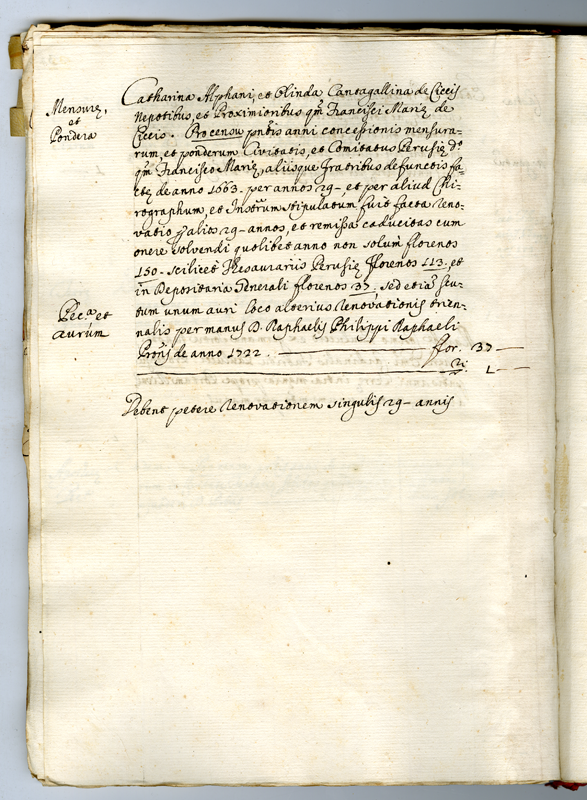 Mensuræ,
et
Pondera
Catharina Alphani, et Olinda Cantagallina de Cicciis
Nepotibus, et Proximioribus qm̃ Francisci Mariæ de
Ciccis. Pro censu pñtis anni concessionis mensura-
rum, et ponderum Civitatis, et Comitatus Perusiæ d.º
qm̃ Francisco Mariæ, aliisque fratribus defunctis fa-
ctæ de anno 1663. per annos 29- et per aliud Chi-
rographum, et Instrum̃ stipulatum fuit facta Reno-
vatio p̱ alios 29- annos, et remissa caducitas cum
onere solvendi quolibet anno non solum florenos
150- scilicet Thesaurariis Perusiæ florenos 113. et
in Depositaria Generali florenos 37. sed etiã scu-
tum unum auri loco alterius Renovationis trien-
nalis per manus D. Raphaelis Philippi Raphaeli
de anno 1722. flor. 37-
1-
Pec.ª et
aurum
Debent petere Renovationem singulis 29- annis